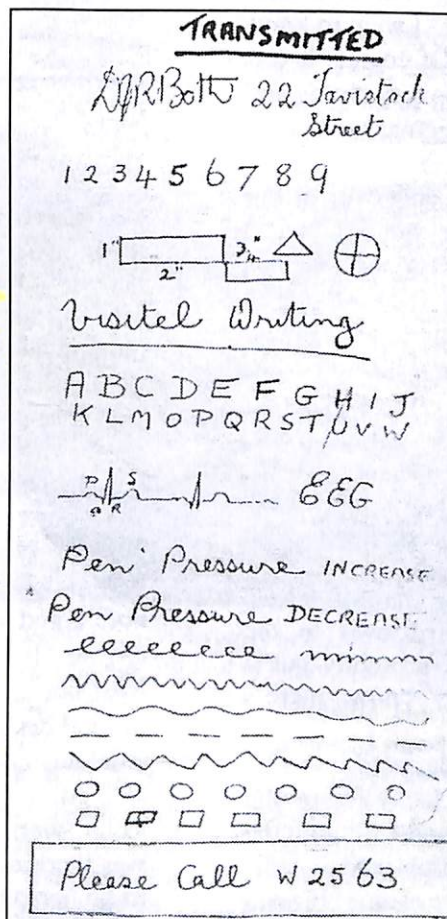 TRANSMITTED
22 Tavistock
Street
1 2 3 4 5 6 7 8 9
1" 2" 3/4"
Visitel Writing
A B C D E F G H I J
K L M O P Q R S T U V W
P Q R S EEG
Pen Pressure INCREASE
Pen Pressure DECREASE
Please Call W 2563